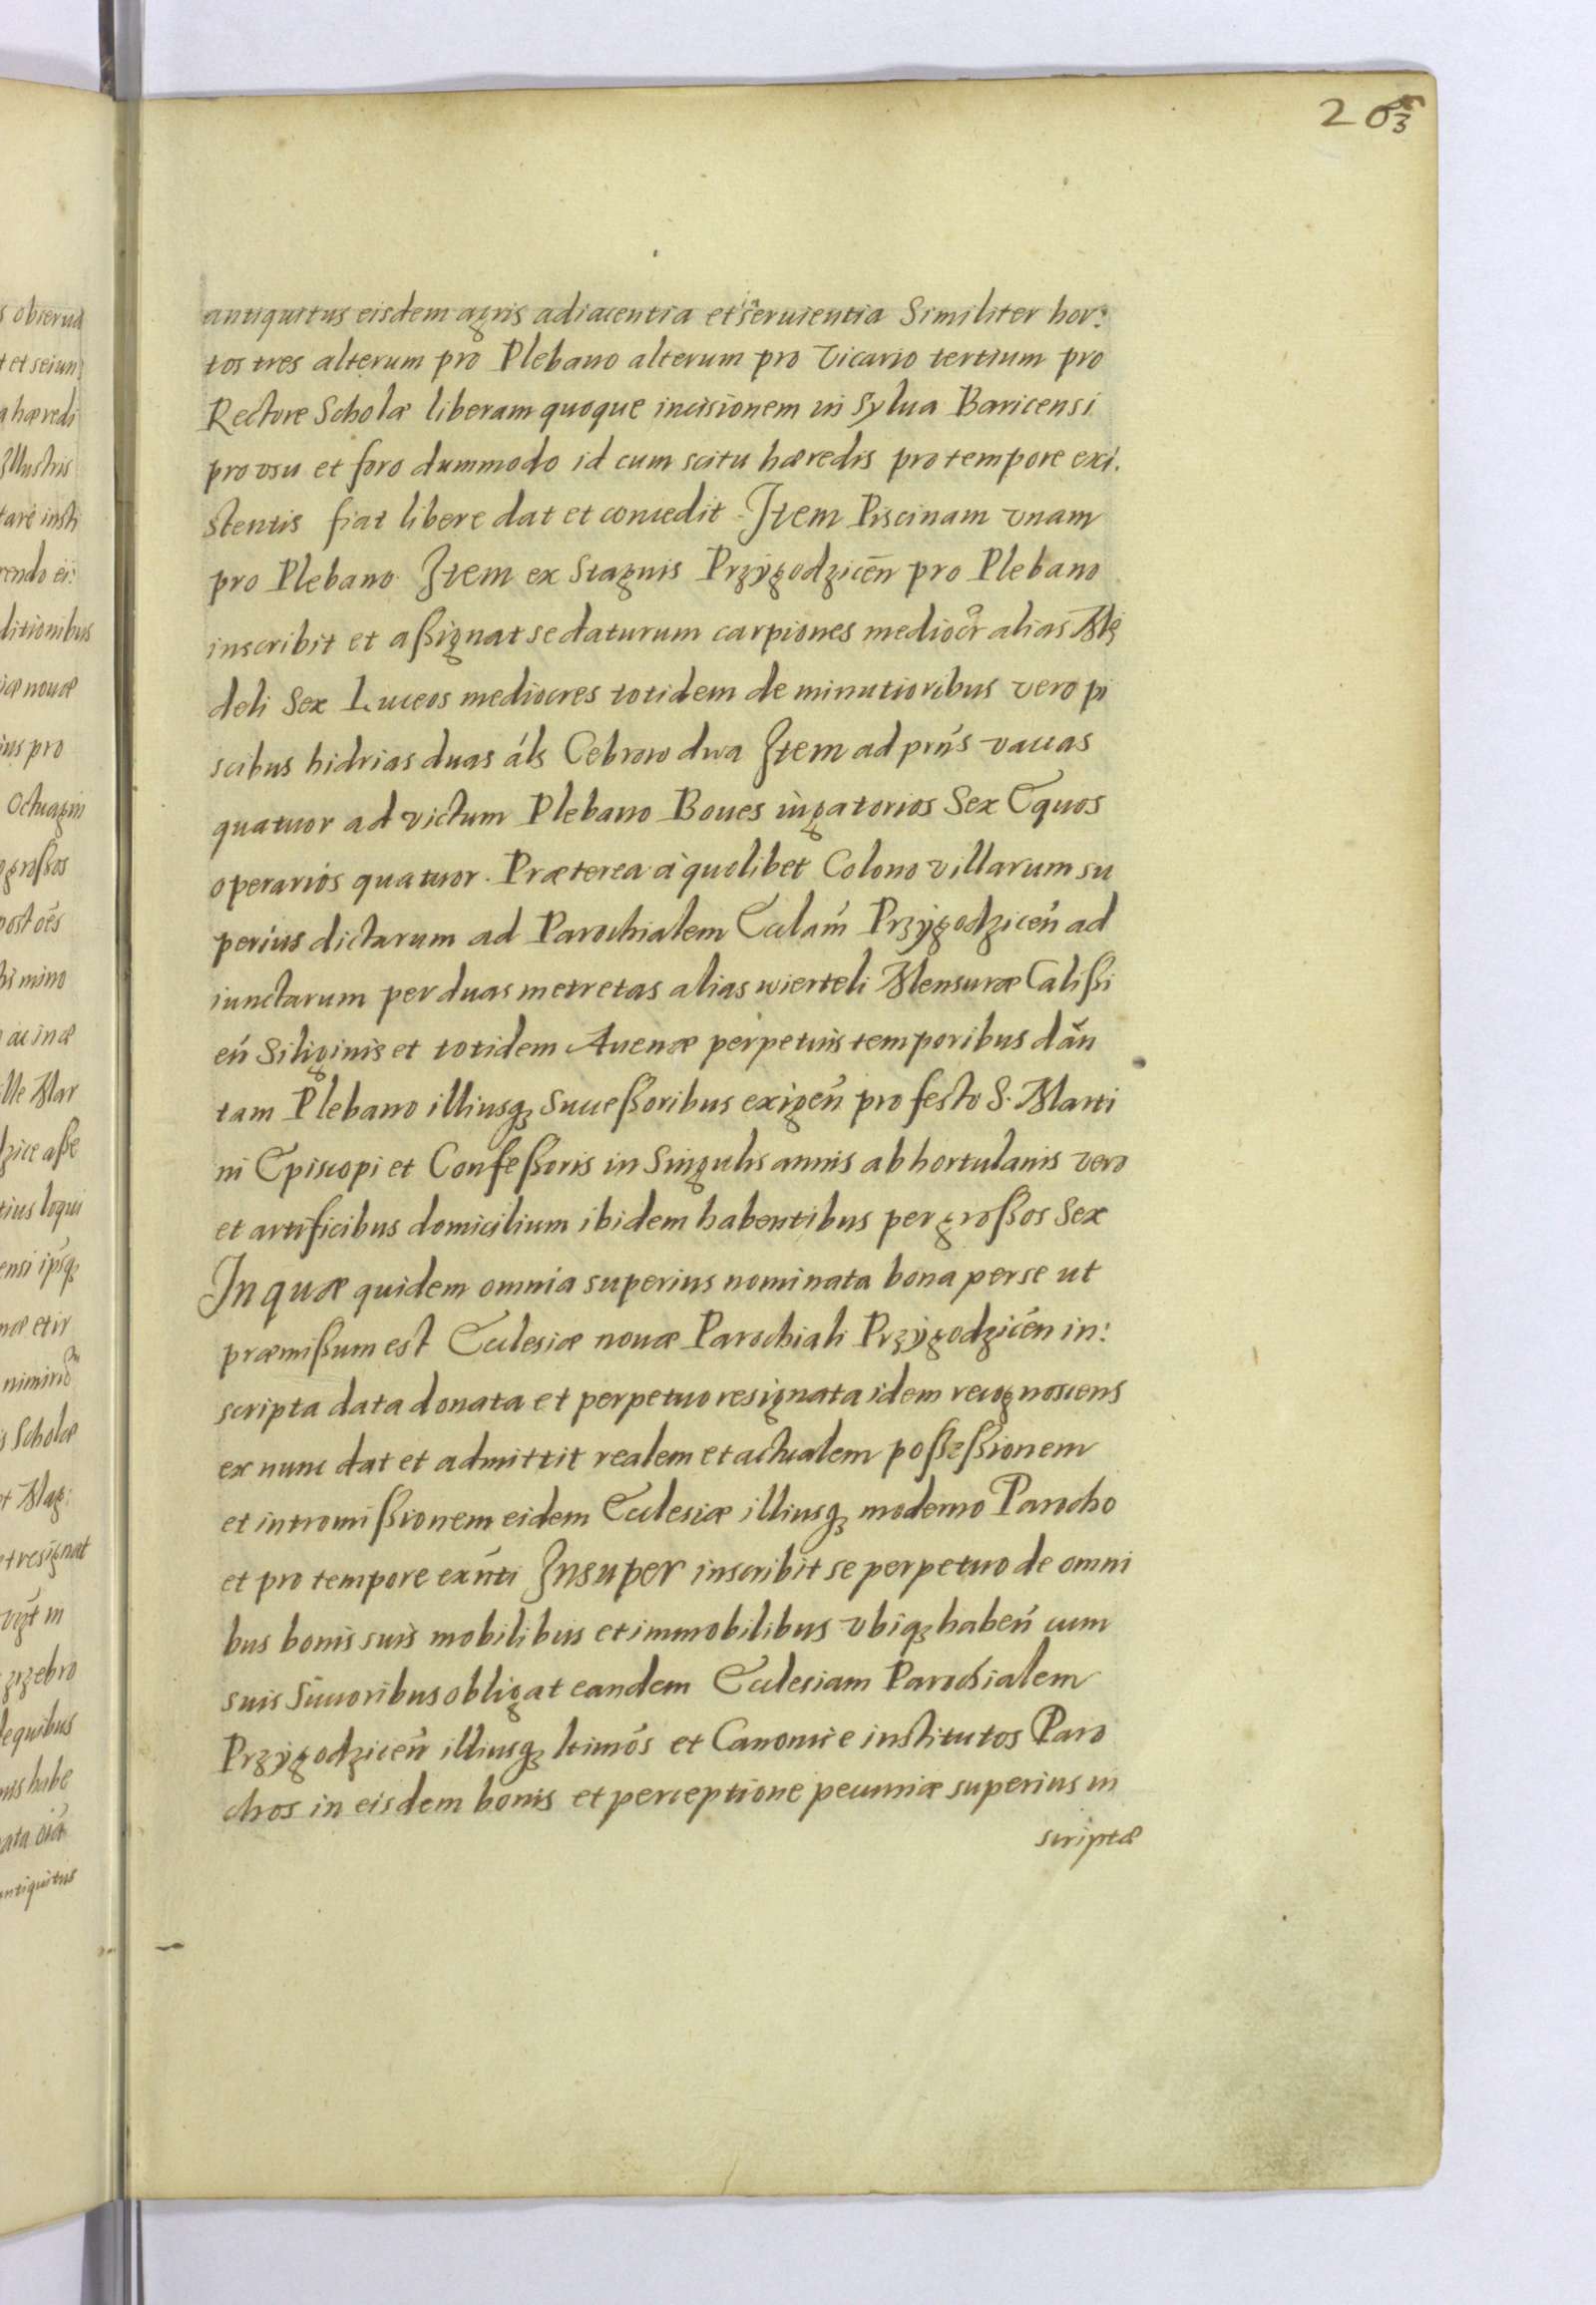 203
antiquitus eisdem agris adiacentia et seruientia Similiter hor:
tos tres alterum pro Plebano alterum pro Vicario tertium pro
Rectore Scholæ liberam quoque incisionem in Sylua Baricensi
pro vsu et foro dummodo id cum scitu hæredis pro tempore exi.
stentis fiat libere dat et concedit Item Piscinam vnam
pro Plebano Item ex Stagnis Przÿgodzicen̄ pro Plebano
inscribit et aßignat se daturum carpiones mediocr̃ alias Mę
deli Sex Luceos mediocres totidem de minutioribus vero pi
scibus hidrias duas áls Cebrow dwa Item ad prn̄s vaccas
quatuor ad victum Plebano Boues iugatorios Sex Equos
operarios quatuor. Præterea à quolibet Colono villarum su
perius dictarum ad Parochialem Ecclam̃ Przÿgodzicen̄ ad
iunctarum per duas metretas alias wierteli Mensuræ Calißi
en̄ Siliginis et totidem Auenæ perpetuis temporibus dan̄
tam Plebano illiusqꝫ Succeßoribus exigen̄ pro festo S. Marti
ni Episcopi et Confeßoris in Singulis annis ab hortulanis vero
et artificibus domicilium ibidem habentibus per großos Sex
In quæ quidem omnia superius nominata bona per se ut
præmißum est Ecclesiæ nouæ Parochiali Przÿgodzicén in:
scripta data donata et perpetuo resignata idem recognoscens
ex nunc dat et admittit realem et actualem poßeßionem
et intromißionem eidem Ecclesiæ illiusqꝫ moderno Parocho
et pro tempore exn̄ti Insuper inscribit se perpetuo de omni
bus bonis suis mobilibus et immobilibus vbiqꝫ haben̄ cum
suis Sūccoribus obligat eandem Ecclesiam Parochialem
Przÿgodzicen̄ illiusqꝫ ltimõs et Canonice institutos Paro
chos in eisdem bonis et perceptione pecuniæ superius in
scriptæ